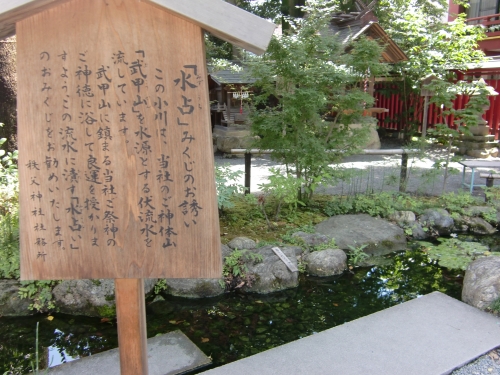 「水占」みくじのお誘い
この小川は、当社のご神体山
「武甲山」を水源とする伏流水を
流しています。
武甲山に鎮まる当社ご祭神の
ご神徳に浴して良運を授かりま
すようこの流水に漬す「水占い」
のおみくじをお勧めいたします。
秩父神社社務所